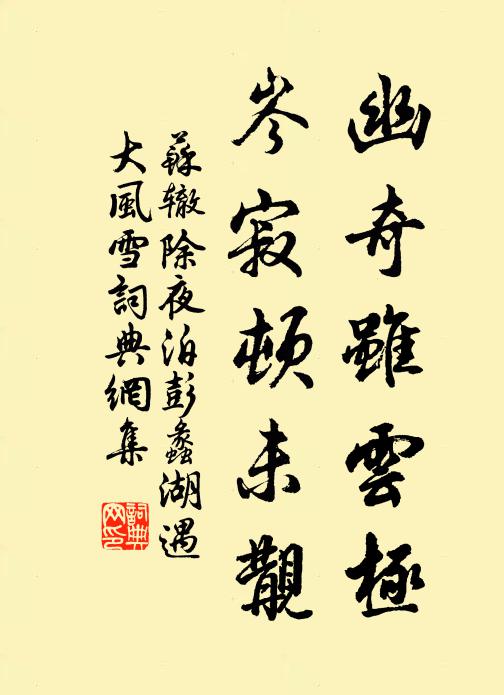 幽奇雖雲極
岑寂頓未觀
蘇辙除夜泊彭蠡湖遇
大風雪詞典網集
詞典
网印